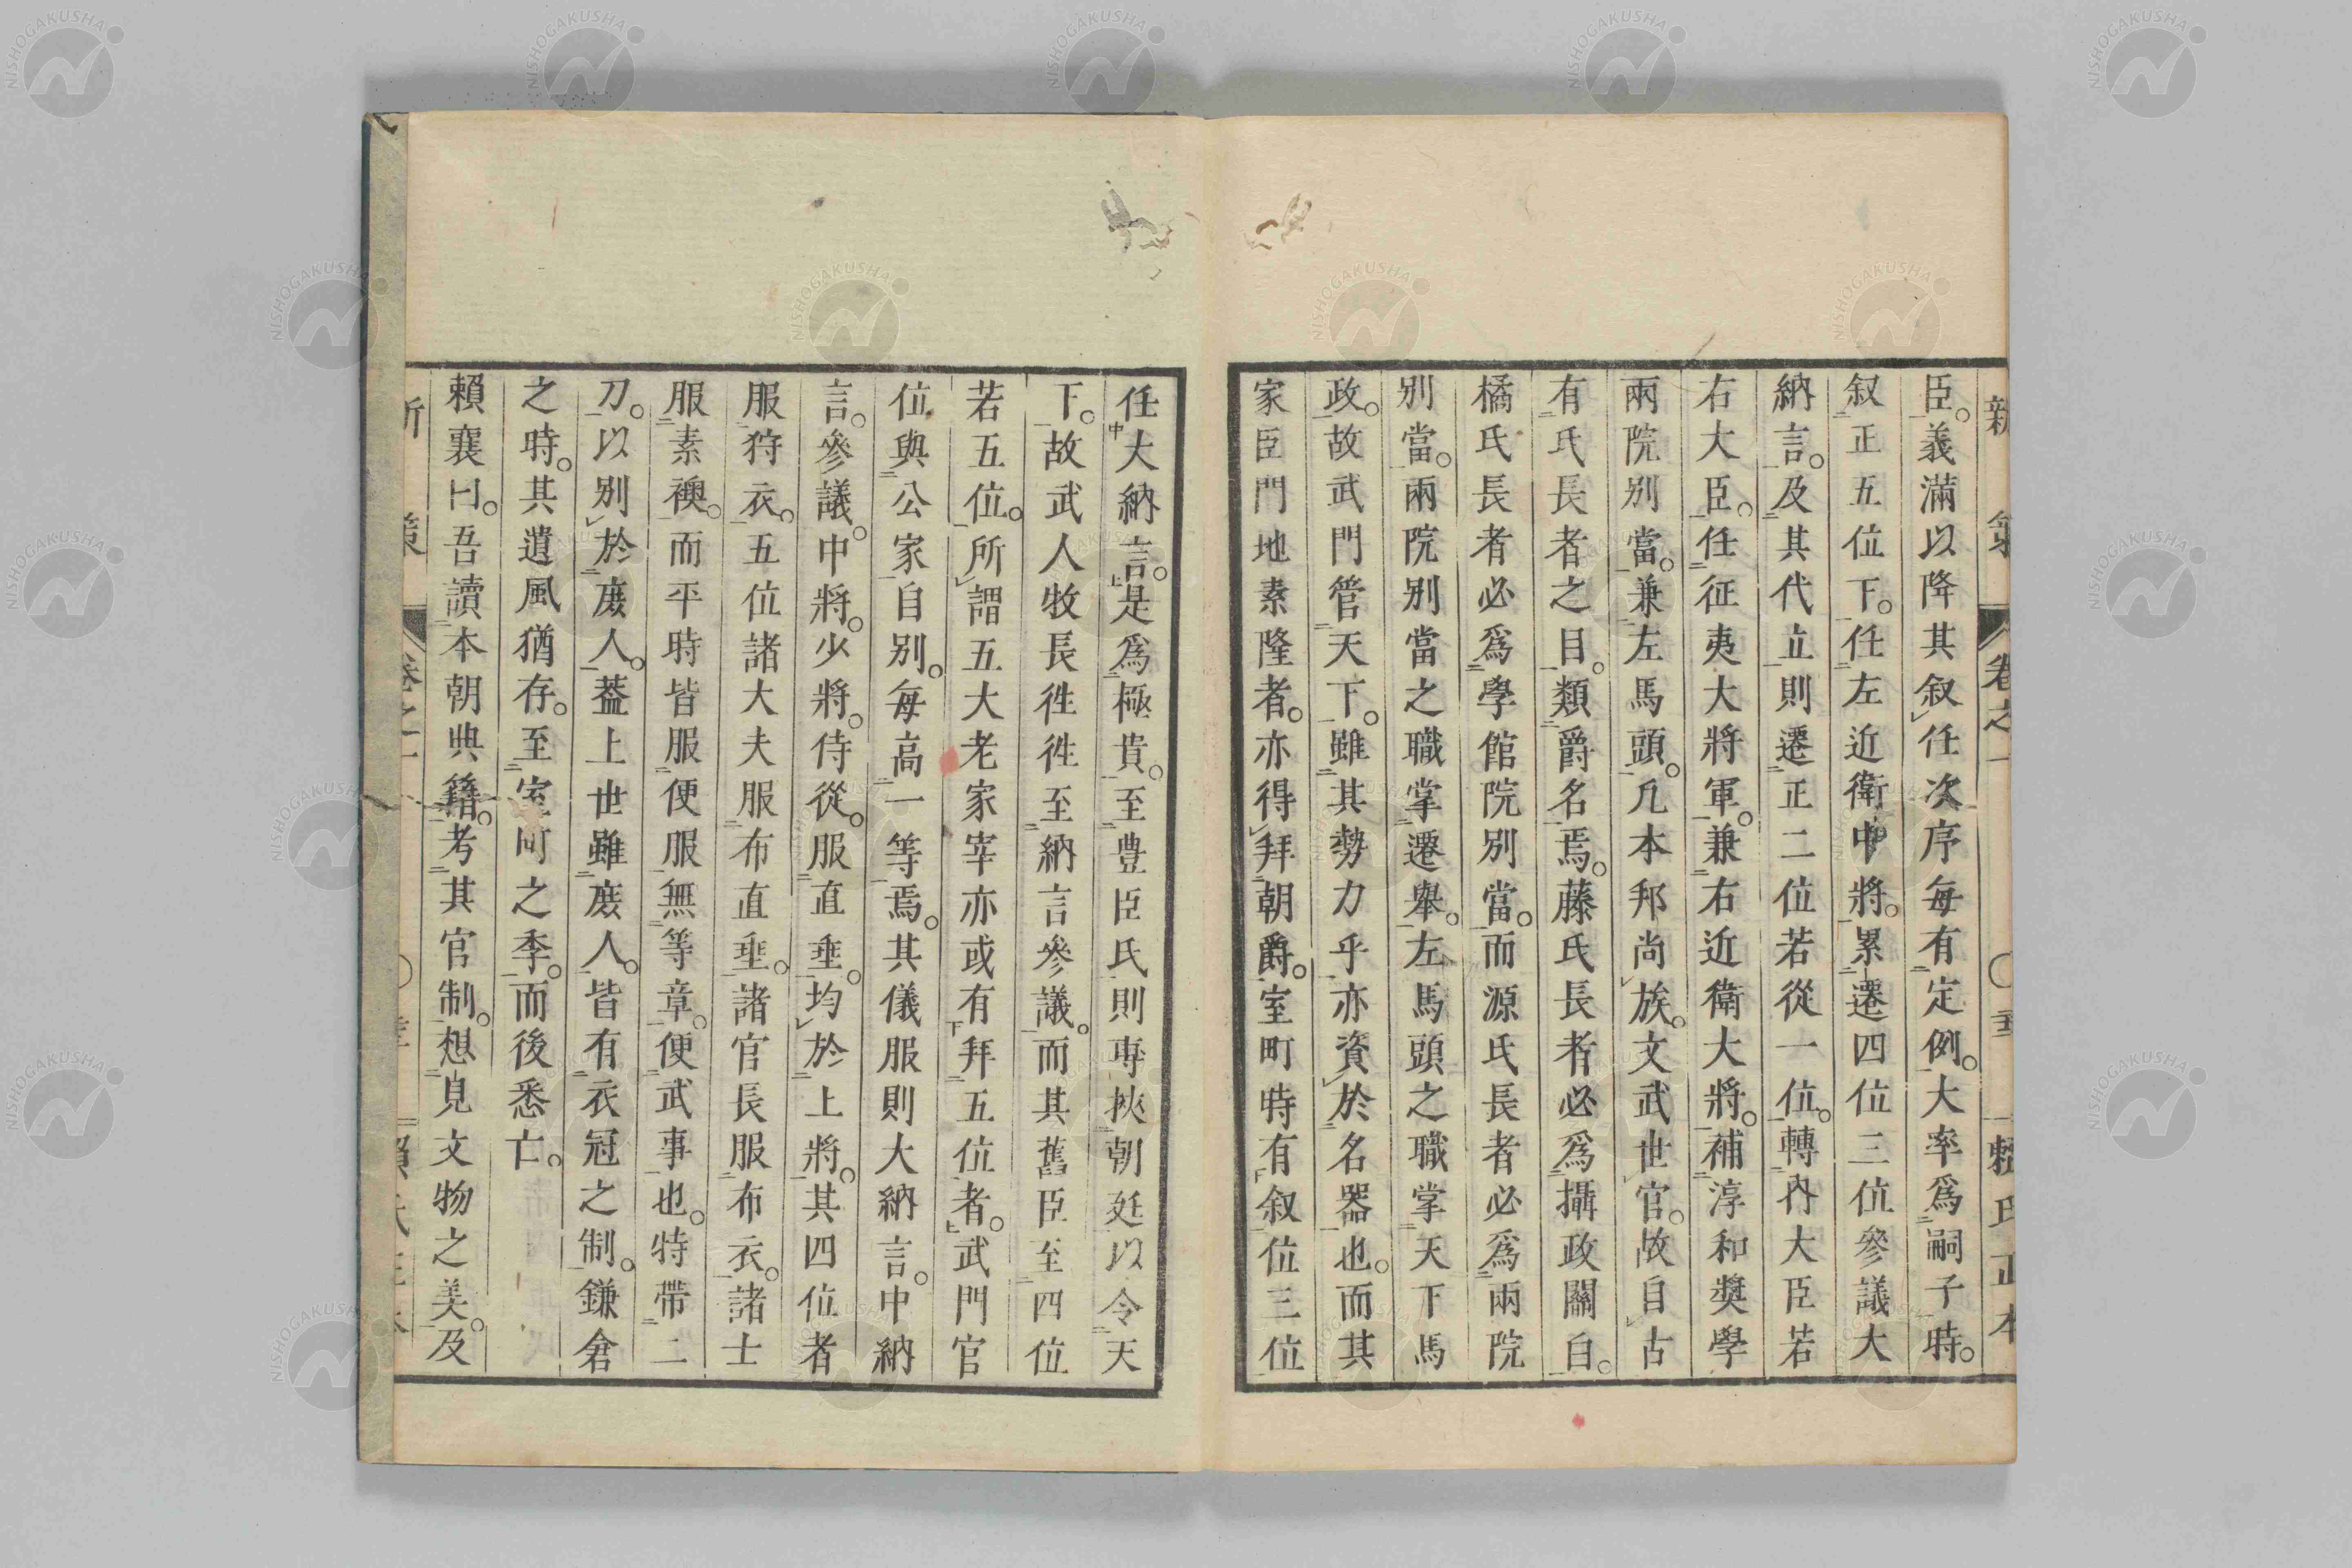 臣。義滿以降其叙任次序每有定例。大率爲嗣子時。
叙正五位下。任左近衛中將。累遷四位三位參議大
納言。及其代立則遷正二位若從一位。轉內大臣若
右大臣。任征夷大將軍。兼右近衛大將。補淳和奬學
兩院別當。兼左馬頭。凡本邦尚族。文武世官。故自古
有氏長者之目。類爵名焉。藤氏長者必爲攝政關白。
橘氏長者必爲學館院別當。而源氏長者必爲兩院
別當。兩院別當之職掌遷舉。左馬頭之職掌天下馬
政。故武門管天下。雖其勢力乎亦資於名器也。而其
家臣門地素隆者。亦得拜朝爵。室町時有叙位三位
任大納言。是爲極貴。至豊臣氏則專挾朝廷以令天
下。故武人牧長徃徃至納言參議。而其舊臣至四位
若五位。所謂五大老家宰亦或有拜五位者。武門官
位與公家自別。每高一等焉。其儀服則大納言。中納
言。參議。中將。少將。侍從。服直垂。均於上將。其四位者
服狩衣。五位諸大夫服布直垂。諸官長服布衣。諸士
服素襖。而平時皆服便服無等章。便武事也。特帶二
刀。以別於庻人。葢上世雖庻人。皆有衣冠之制。鎌倉
之時。其遺風猶存。至室町之季。而後悉亡。
賴襄曰。吾讀本朝典籍。考其官制。想見文物之美。及